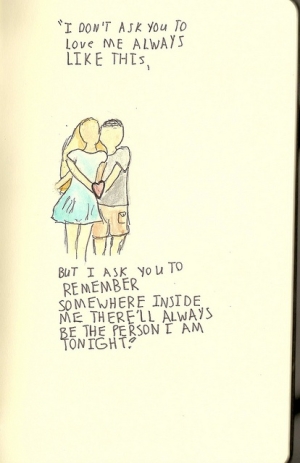 "I DON'T ASK YOU TO
LOVE ME ALWAYS
LIKE THIS,
BUT I ASK YOU TO
REMEMBER
SOMEWHERE INSIDE
ME THERE'LL ALWAYS
BE THE PERSON I AM
TONIGHT."